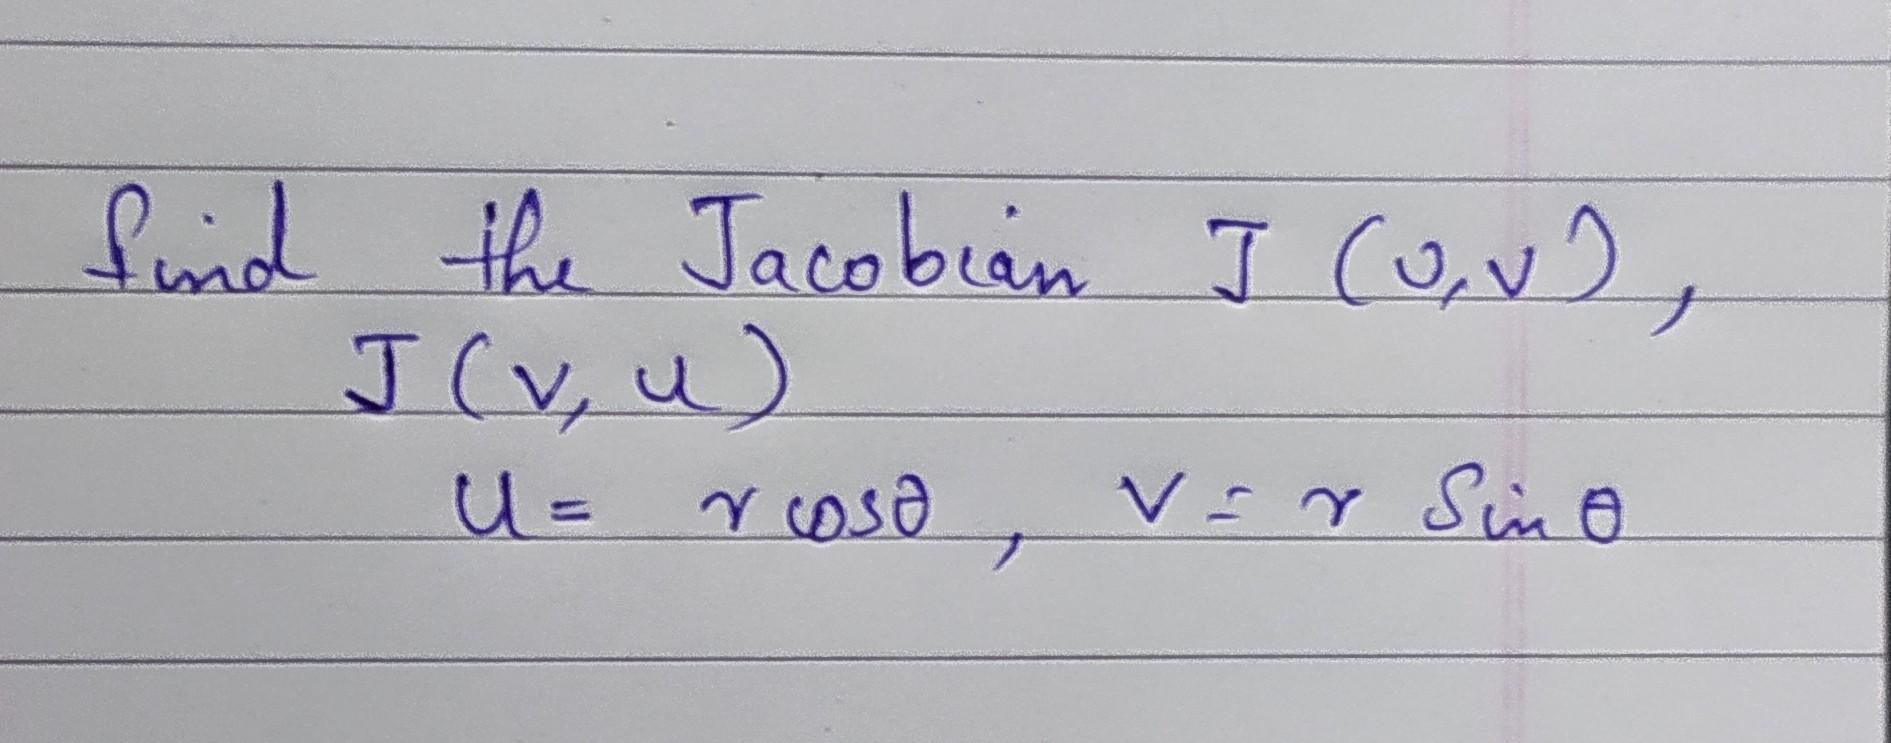 find the Jacobian J (u,v),
J (v, u)
u = r cosθ, v = r Sin θ